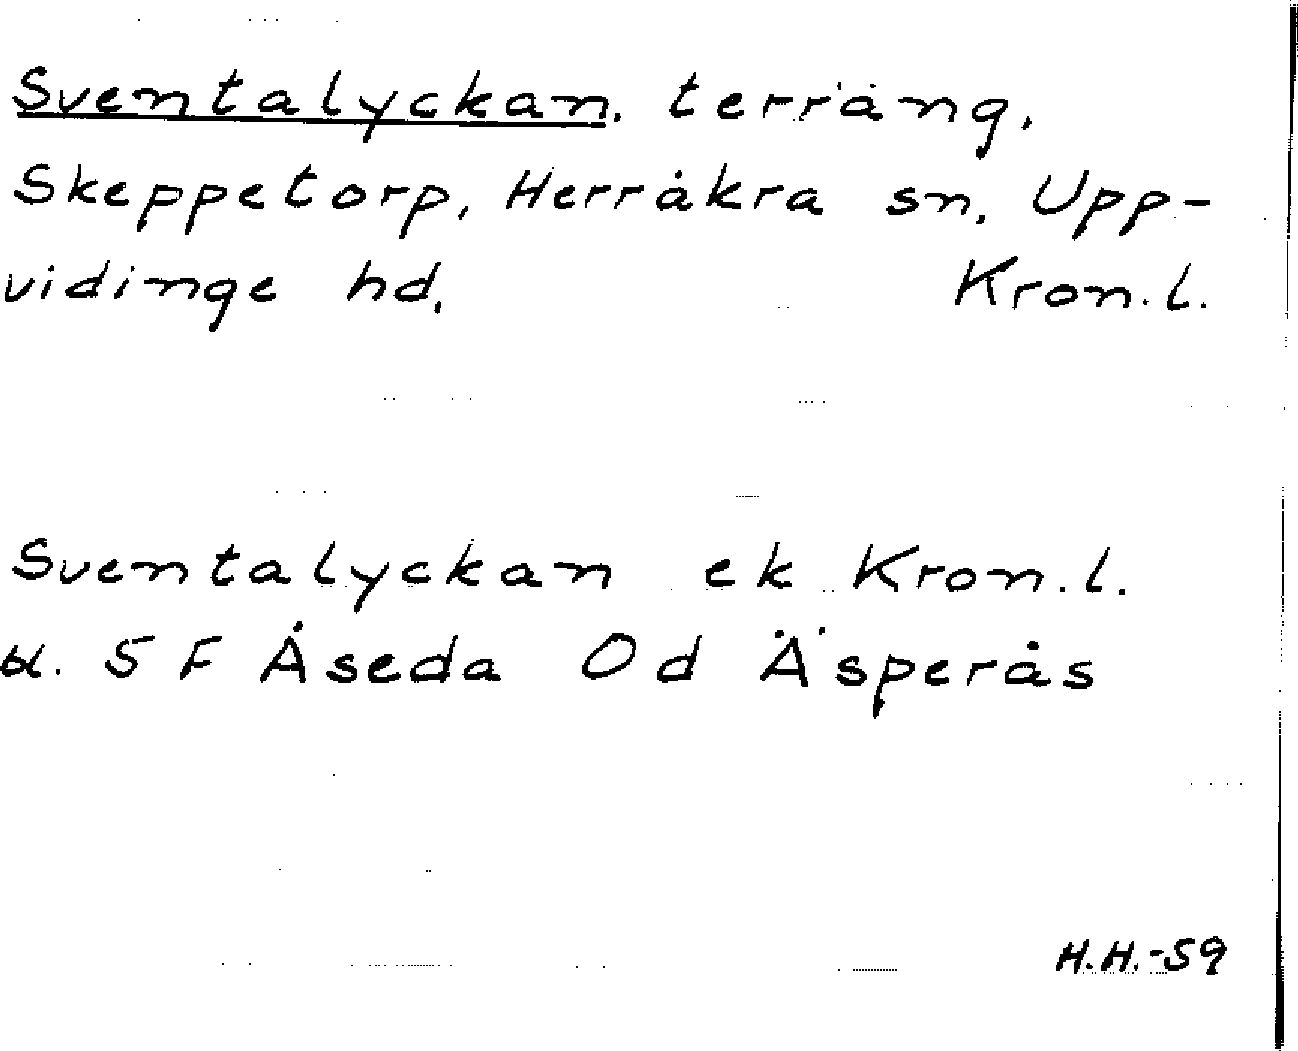 Sventalyckan. terräng,
Skeppetorp, Herråkra sn. Upp-
vidinge hd. Kron.l.
Sventalyckan ek Kron.l.
bl. 5 F Åseda Od Äsperås
H.H.-59